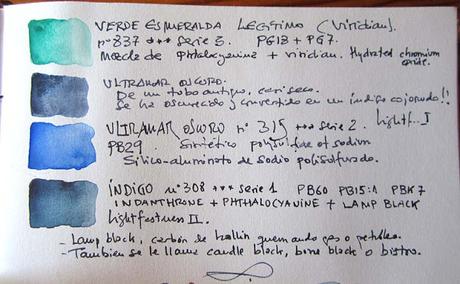 VERDE ESMERALDA LEGÍTIMO (Viridian).
nº 837 *** serie 3. PG18 + PG7.
Mezcla de phthalocyanine + viridian. Hydrated chromium oxide.
ULTRAMAR OSCURO.
De un tubo antiguo, casi seco.
Se ha oscurecido y convertido en un índigo cojonudo!!
ULTRAMAR OSCURO nº 315 *** serie 2. Lightf... I
PB29. Sintético polysulfure of sodium
Silico-aluminato de sodio polisulfurado.
ÍNDIGO nº 308 *** serie 1 PB60 PB15:1 PBK7
INDANTHRONE + PHTHALOCYANINE + LAMP BLACK
Lightfastness II.
- Lamp black, carbón de hollín quemando gas o petróleo.
- También se le llama candle black, bone black o bistro.